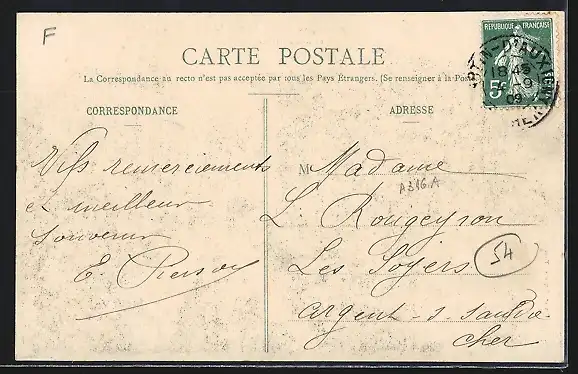 F
CARTE POSTALE
La Correspondance au recto n'est pas acceptée par tous les Pays Étrangers. (Se renseigner à la Poste
REPUBLIQUE FRANÇAISE
5c
18 45
9
CORRESPONDANCE
ADRESSE
Vifs remerciements
et meilleur
souvenir
E.
M Madame
A316.A
L. Rougeyron
Les
54
Argent-s-Sauldre
Cher